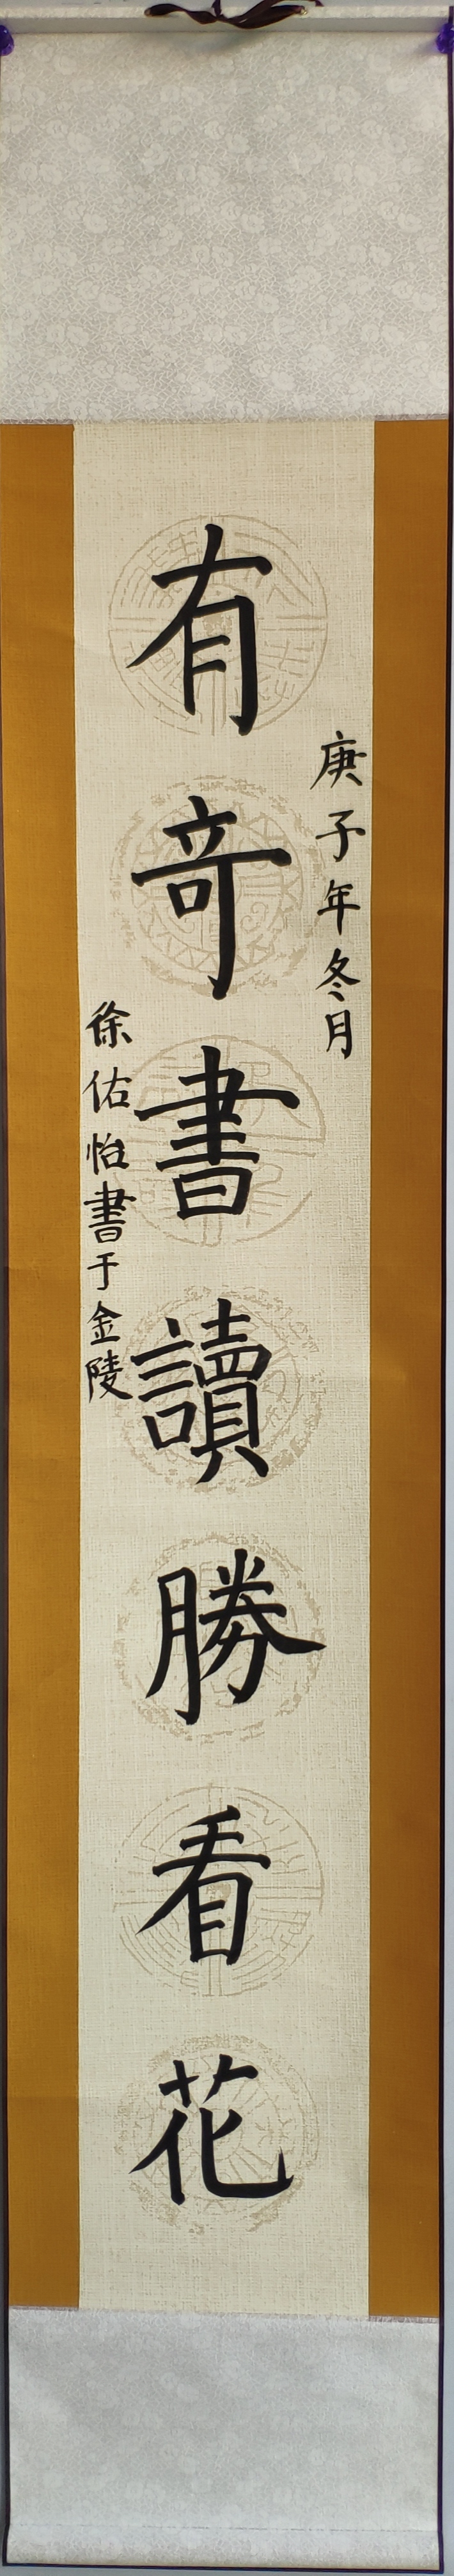 庚子年冬月
有奇書讀勝看花
徐佑怡書于金陵